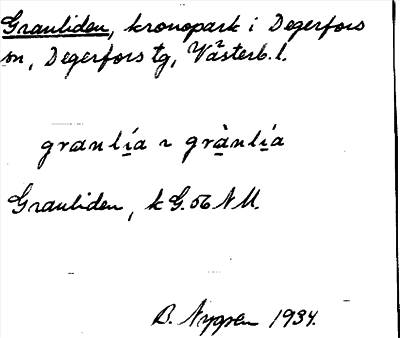 Granliden, kronopark i Degerfors
sn, Degerfors tg, Västerb. l.
granlia ~ grànlia
Granliden, k G. 56 NM.
B. Nygren 1934.